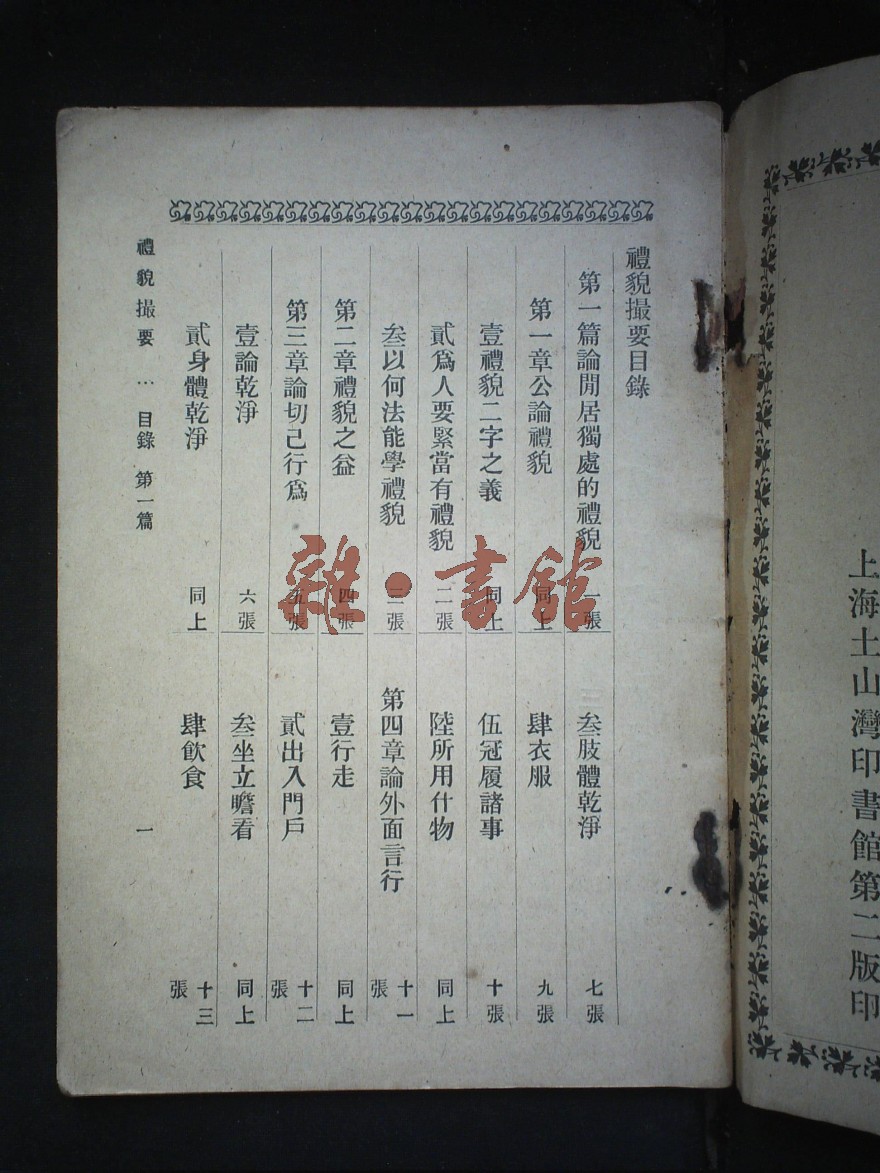 上海土山灣印書館第二版印
禮貌撮要目錄
第一篇論閒居獨處的禮貌 一張
第一章公論禮貌 同上
壹禮貌二字之義 同上
貳爲人要緊當有禮貌 二張
叁以何法能學禮貌 三張
第二章禮貌之益 四張
第三章論切己行爲 五張
壹論乾淨 六張
貳身體乾淨 同上
叁肢體乾淨 七張
肆衣服 九張
伍冠履諸事 十張
陸所用什物 同上
第四章論外面言行 十一張
壹行走 同上
貳出入門戶 十二張
叁坐立瞻看 同上
肆飲食 十三張
禮貌撮要 ∴ 目錄 第一篇 一
雜·書館